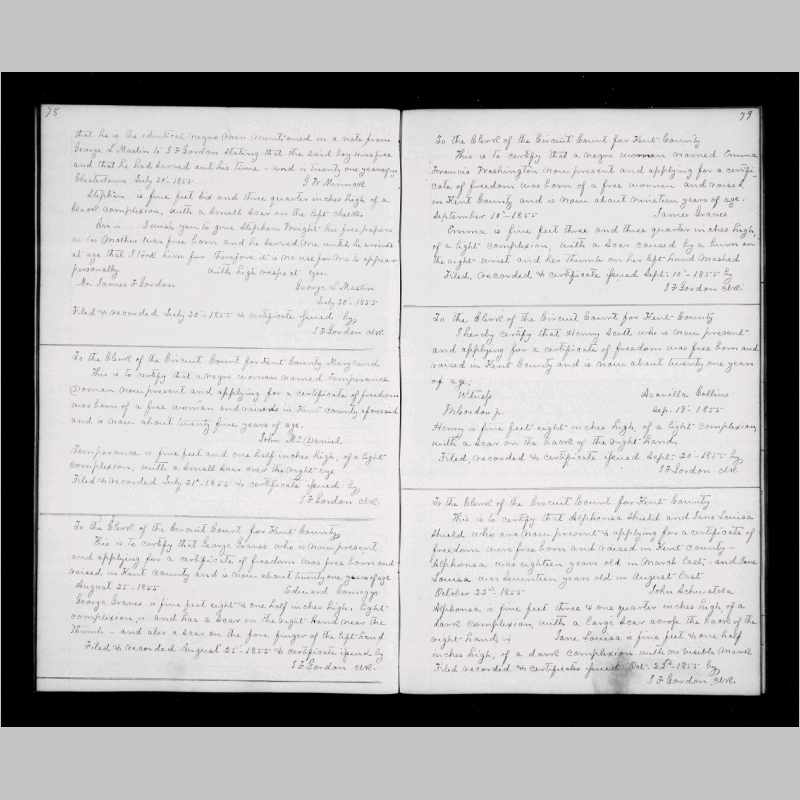 78
that he is the identical negro man mentioned in a note from
George S. Maslin to J F Gordon stating that the said boy was free
and that he had served out his time - and is twenty one years of age
Chestertown July 20th 1855
Stephen is five feet six and three quarter inches high, of a
black complexion, with a small scar on the left cheek
I wish you to give Stephen Wright his free papers
as his Mother was free born and he served me until he arrived
at age that I took him for Therefore it is no use for me to appear
personally with high respect your
Mr. James F Gordon George S Maslin
July 20 - 1855
Filed & recorded July 20 - 1855 & certificate issued by
J F Gordon clk.
To the Clerk of the Circuit Court for Kent County Maryland
This is to certify that a negro woman named Temperance
woman now present and applying for a certificate of freedom
was born of a free woman and raised in Kent County aforesaid
and is now about twenty five years of age.
John McDaniel
Temperance is five feet and one half inches high, of a light
complexion, with a small scar over the right eye
Filed & recorded July 21st 1855 & certificate issued by
J F Gordon clk.
To the Clerk of the Circuit Court for Kent County
This is to certify that George Graves who is now present
and applying for a certificate of freedom was free born and
raised in Kent County and is now about twenty one years of age
August 25 - 1855 Edward
George Graves is five feet eight & one half inches high, light
complexion, and has a scar on the right hand near the
thumb - and also a scar on the fore finger of the left hand
Filed & recorded August 25 - 1855 & certificate issued by
J F Gordon clk.
79
To the Clerk of the Circuit Court for Kent County
This is to certify that a negro woman named Emma
Francis Washington now present and applying for a certifi-
cate of freedom was born of a free woman and raised
in Kent County and is now about nineteen years of age.
September 10th - 1855 James Graves
Emma is five feet three and three quarter inches high,
of a light complexion, with a scar caused by a burn on
the right wrist and her thumb on her left hand mashed
Filed, recorded & certificate issued Sept. 10th - 1855 by
J F Gordon clk.
To the Clerk of the Circuit Court for Kent County
I hereby certify that Henry Scott who is now present
and applying for a certificate of freedom was free born and
raised in Kent County and is now about twenty one years
of age;
Witness Collins
Sep. 18th 1855
Henry is five feet eight inches high, of a light complexion
with a scar on the back of the right hand,
Filed, recorded & certificate issued Sept. 20 - 1855 by
J F Gordon clk.
To the Clerk of the Circuit Court for Kent County
This is to certify that Alphonsa Shield and Jane Louisa
Shield who are now present & applying for a certificate of
freedom were free born and raised in Kent County -
Alphonsa was eighteen years old in March last, and Jane
Louisa was seventeen years old in August last
October 22nd 1855 John
Alphonsa is five feet three & one quarter inches high, of a
dark complexion, with a large scar across the back of the
right hand, & Jane Louisa is five feet & one half
inches high, of a dark complexion with no visible marks
Filed recorded & certificates issued Oct. 22nd 1855 by
J F Gordon clk.